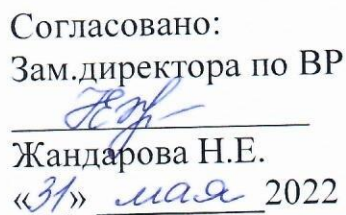 Согласовано:
Зам.директора по ВР
Жандарова Н.Е.
«31» мая 2022